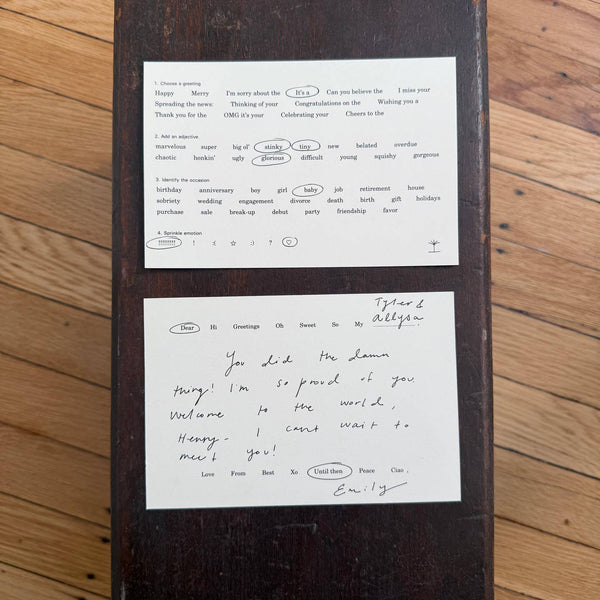 1. Choose a greeting
Happy Merry I'm sorry about the It's a Can you believe the I miss your
Spreading the news: Thinking of your Congratulations on the Wishing you a
Thank you for the OMG it's your Celebrating your Cheers to the
2. Add an adjective
marvelous super big ol' stinky tiny new belated overdue
chaotic honkin' ugly glorious difficult young squishy gorgeous
3. Identify the occasion
birthday anniversary boy girl baby job retirement house
sobriety wedding engagement divorce death birth gift holidays
purchase sale break-up debut party friendship favor
4. Sprinkle emotion
!!!!!!!! ! :( ☆ :) ? ♡
Tyler &
Dear Hi Greetings Oh Sweet So My Allysa
You did the damn
thing! I'm so proud of you.
Welcome to the world,
Henry - I can't wait to
meet you!
Love From Best Xo Until then Peace Ciao ,
Emily